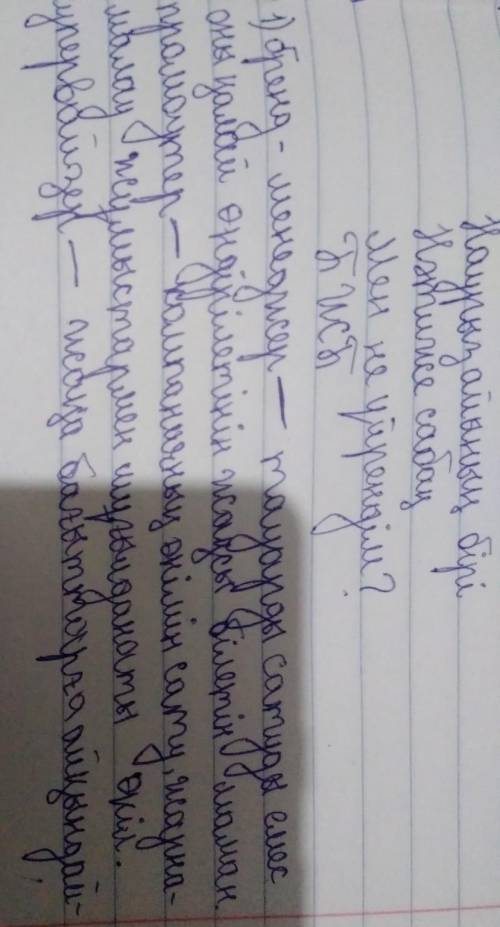 Наурыз айының бірі
Нәтиже сабақ
Мен не үйрендім?
БЖБ
1) бренд - менеджер — тауарды сатуды емес
оны қалай өндірілетінін жақсы білетін маман.
промоутер — компанияның өнімін сату, жарна-
малау жұмыстармен шұғылданаты өкіл.
упервайзер — жаңа бағыттарға айқындай-